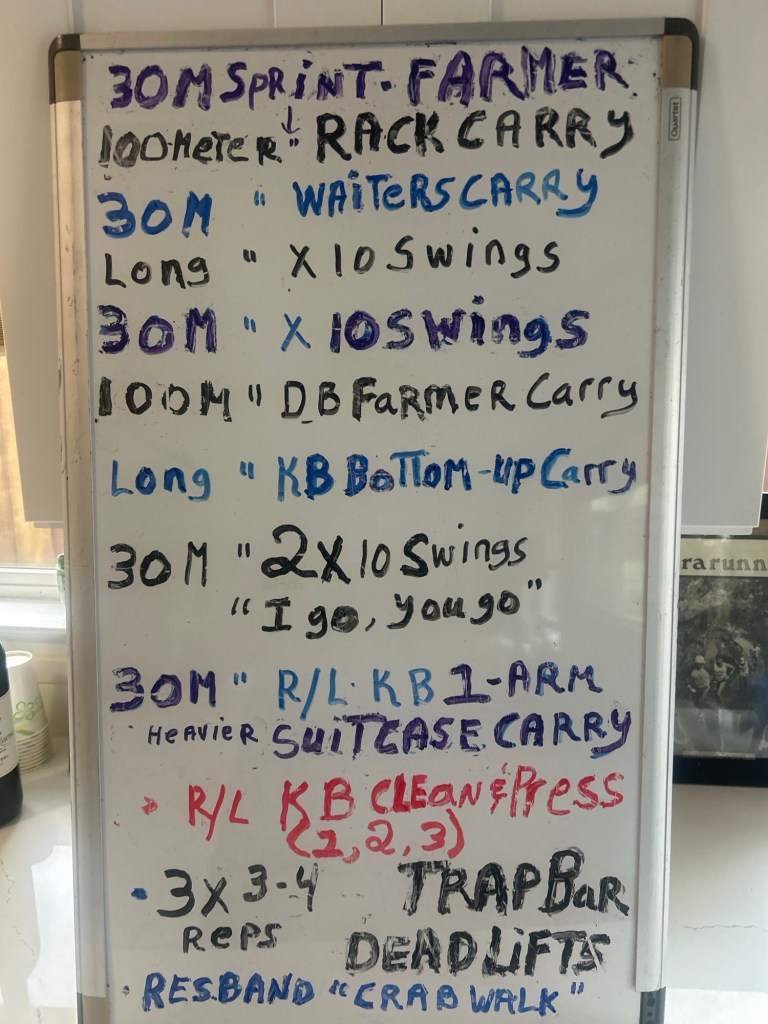 30M SPRINT - FARMER
100METER " RACK CARRY
30M " WAITERS CARRY
Long " X 10 Swings
30M " X 10 Swings
100M " DB FARMER Carry
Long " KB BOTTOM-UP Carry
30M " 2X10 Swings
"I go, you go"
30M " R/L KB 1-ARM
HEAVIER SUITCASE CARRY
R/L KB CLEAN & PRess
(1, 2, 3)
• 3X 3-4 TRAP BaR
REPS DEADLiFTS
• RES.BAND "CRAB WALK"
Quartet
rarunn